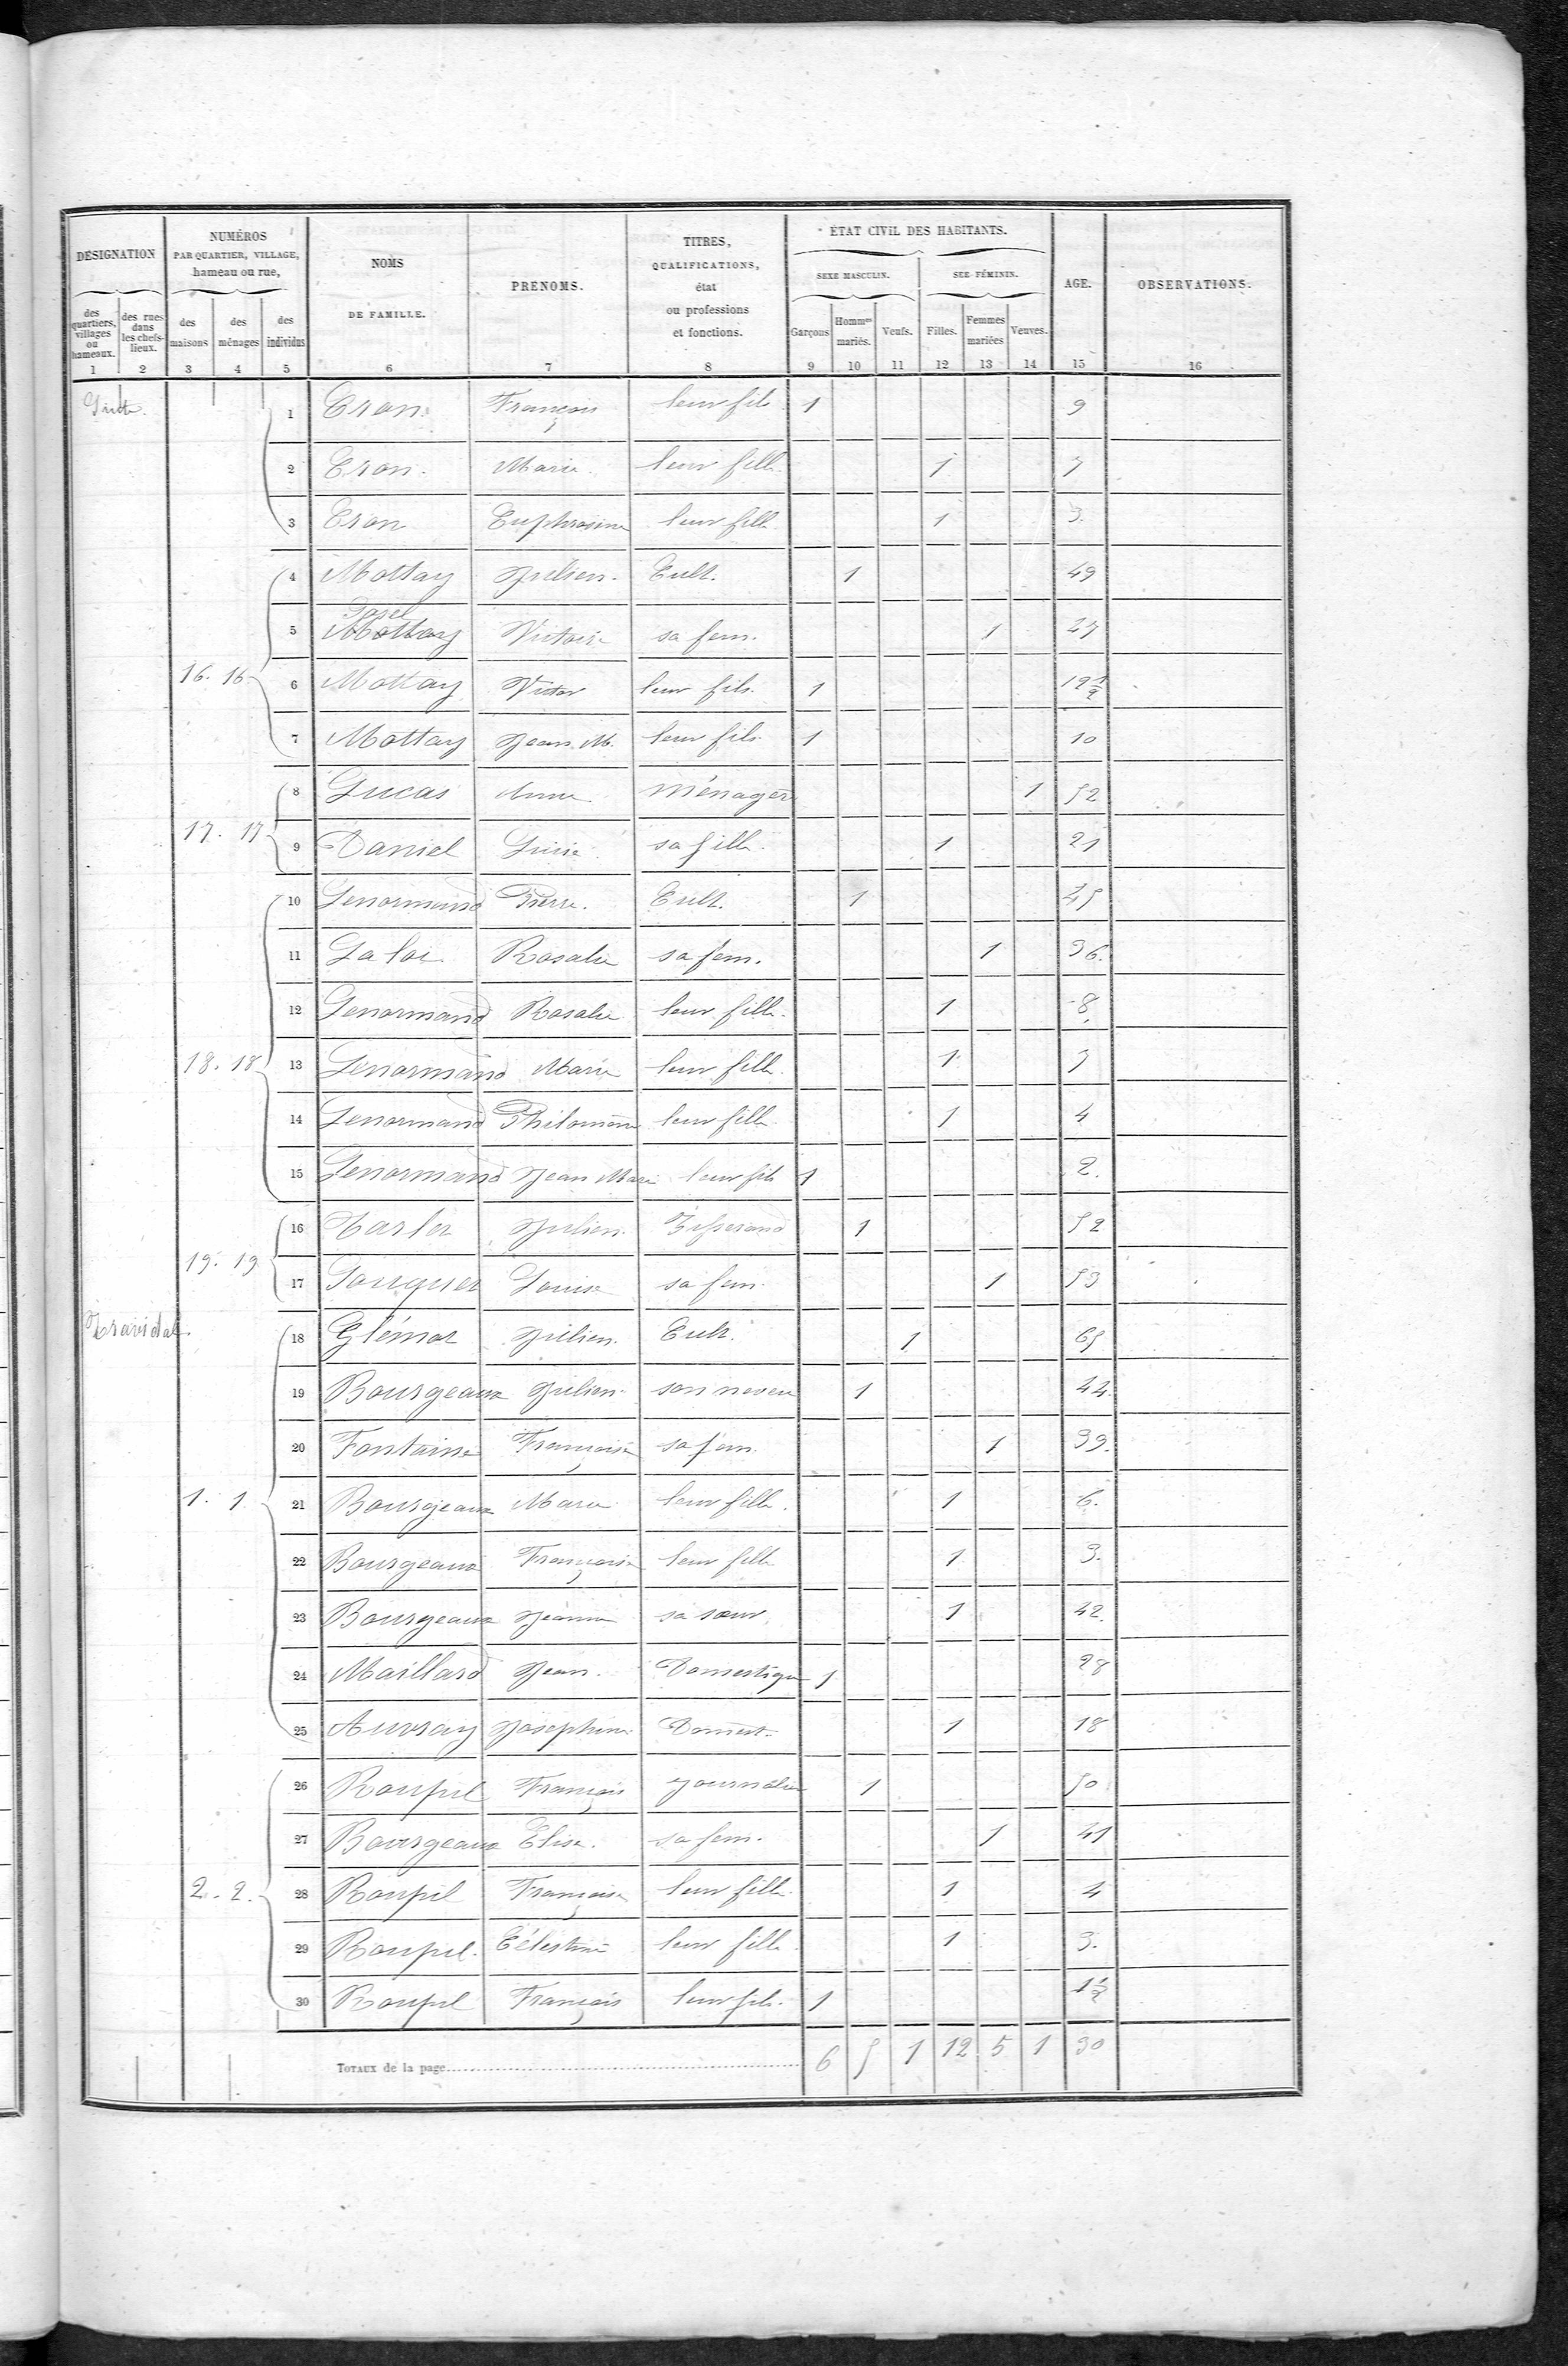 DÉSIGNATION
NUMÉROS
PAR QUARTIER, VILLAGE,
hameau ou rue,
NOMS
DE FAMILLE.
PRÉNOMS.
TITRES,
QUALIFICATIONS,
état
ou professions
et fonctions.
ÉTAT CIVIL DES HABITANTS.
SEXE MASCULIN.
SEE FÉMININ.
AGE.
OBSERVATIONS.
des quartiers, villages ou hameaux.
des rues dans les chefs-lieux.
des maisons
des ménages
des individus
Garçons
Hommes mariés.
Veufs.
Filles.
Femmes mariées
Veuves.
1 2 3 4 5 6 7 8 9 10 11 12 13 14 15 16
1 Eron François leur fils 1 9
2 Eron Marie leur fille 1 7
3 Eron Euphrosine leur fille 1 3
4 Mottay Julien Cult. 1 49
5 Mottay Victoire sa fem. 1 47
16. 16 6 Mottay Victor leur fils 1 12 1/2
7 Mottay Jean M. leur fils 1 10
8 Lucas Anne ménagère 1 52
17. 17 9 Daniel sa fille 1 21
10 Lenormand Pierre. Cult. 1 45
11 Rosalie sa fem. 1 36
12 Lenormand Rosalie leur fille 1 8
18. 18 13 Lenormand Marie leur fille 1 7
14 Lenormand Philomène leur fille 1 4
15 Lenormand Jean Marie leur fils 1 2
16 Julien Tisserand 1 52
19. 19 17 Louise sa fem. 1 53
Travidal.
18 Glémot Julien Cult. 1 65
19 Bourgeaux Julien son neveu 1 44
20 Fontaine Françoise sa fem. 1 39
1. 1 21 Bourgeaux Marie leur fille 1 6
22 Bourgeaux Françoise leur fille 1 3
23 Bourgeaux Jeanne sa sœur 1 42
24 Maillard Jean Domestique 1 28
25 Auvray Joséphine Domest. 1 18
26 Roupil François journalier 1 50
27 Bourgeaux Elise. sa fem. 1 41
2. 2. 28 Roupil Françoise leur fille 1 4
29 Roupil Célestine leur fille 1 3
30 Roupil François leur fils 1 1 1/2
TOTAUX de la page 6 5 1 12 5 1 30